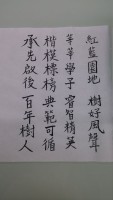 紅藍園地 樹好風聲
莘莘學子 睿智精英
楷模標榜 典範可循
承先啟後 百年樹人